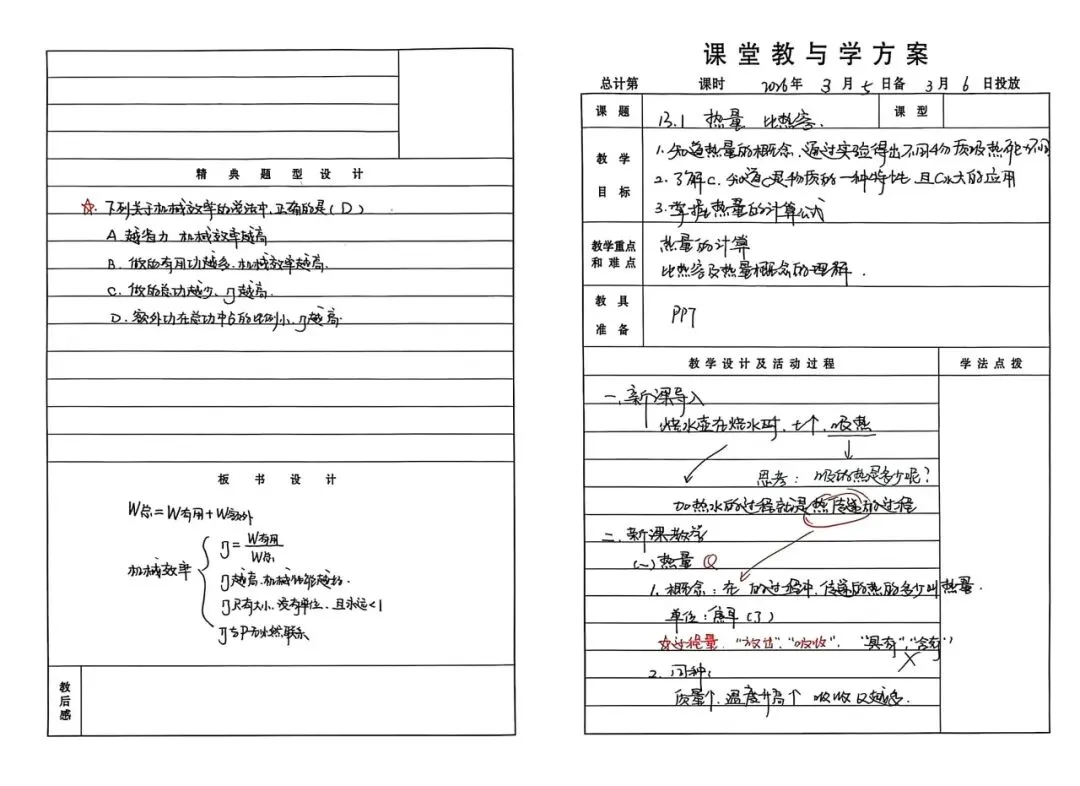 精典题型设计
☆. 下列关于机械效率的说法中,正确的是(D)
A. 越省力 机械效率越高
B. 做的有用功越多,机械效率越高.
C. 做的总功越少、η越高.
D. 额外功在总功中占的比例小、η越高.
板书设计
W总=W有用+W额外
机械效率
η=W有用/W总
η越高,机械性能越好.
η只有大小、没有单位、且永远<1
η与P无必然联系
教后感
课堂教与学方案
总计第 课时 2026年 3月5日备 3月6日投放
课题 13.1 热量 比热容. 课型
教学目标
1. 知道热量的概念,通过实验得出不同物质吸热能力不同
2. 了解C,知道C是物质的一种特性,且C水大的应用
3. 掌握热量的计算公式
教学重点和难点
热量的计算
比热容及热量概念的理解.
教具准备
PPT
教学设计及活动过程 学法点拨
一.新课导入
烧水壶在烧水时,t↑,吸热
思考:吸的热是多少呢?
加热水的过程就是热传递的过程
二.新课教学
(一)热量 Q
1. 概念:在 的过程中,传递的热的多少叫热量.
单位:焦耳(J)
☆过程量 "放出""吸收". "具有","含有" ×
2. 同种:
质量↑,温度升高↑ 吸收Q越多.